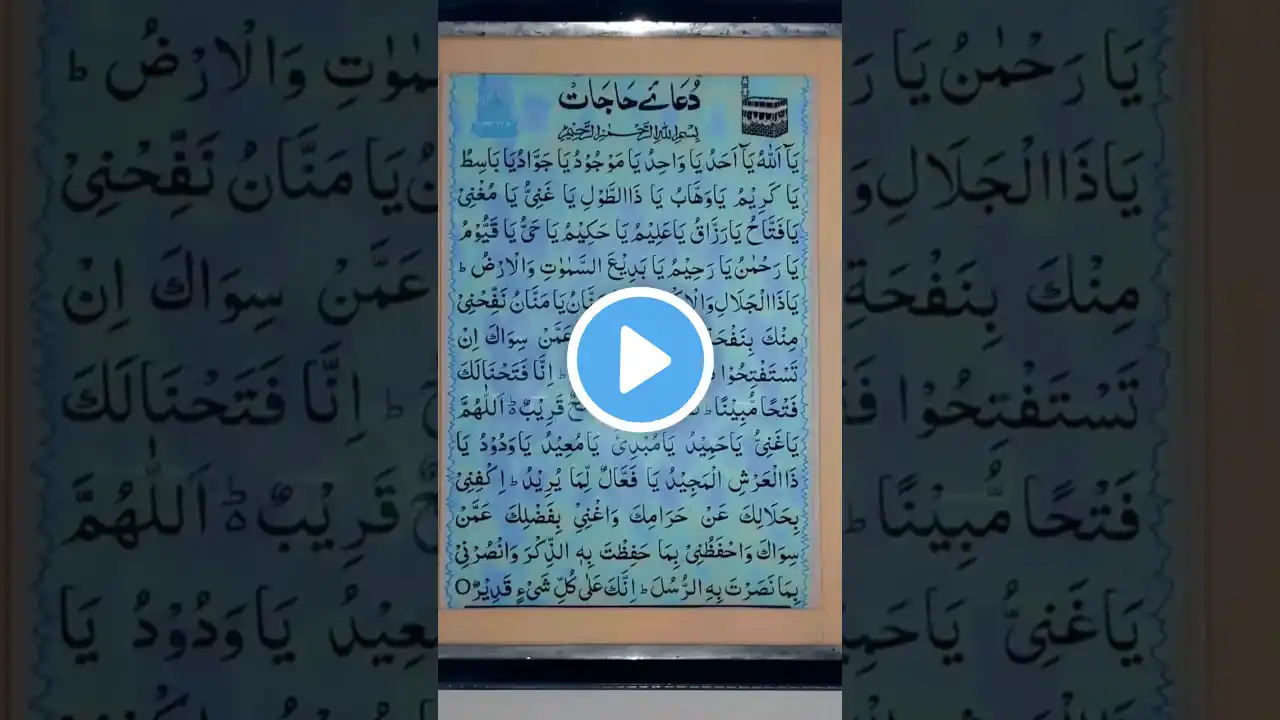 دُعَائے حَاجَاتْ
بِسْمِ اللهِ الرَّحْمٰنِ الرَّحِيْمِ
يَآ اَللهُ يَآ اَحَدُ يَا وَاحِدُ يَا مَوْجُوْدُ يَا جَوَّادُ يَا بَاسِطُ
يَا كَرِيْمُ يَا وَهَّابُ يَا ذَا الطَّوْلِ يَا غَنِيُّ يَا مُغْنِيْ
يَا فَتَّاحُ يَا رَزَّاقُ يَا عَلِيْمُ يَا حَكِيْمُ يَا حَيُّ يَا قَيُّوْمُ
يَا رَحْمٰنُ يَا رَحِيْمُ يَا بَدِيْعَ السَّمٰوٰتِ وَالْاَرْضِ ط
يَا ذَا الْجَلَالِ وَالْاِ نَّانُ يَا مَنَّانُ نَفِّحْنِيْ
مِنْكَ بِنَفْحَةٍ عَمَّنْ سِوَاكَ اِنْ
تَسْتَفْتِحُوْا ط اِنَّا فَتَحْنَا لَكَ
فَتْحًا مُّبِيْنًا ط قَرِيْبٌ ط اَللّٰهُمَّ
يَا غَنِيُّ يَا حَمِيْدُ يَا مُبْدِئُ يَا مُعِيْدُ يَا وَدُوْدُ يَا
ذَا الْعَرْشِ الْمَجِيْدُ يَا فَعَّالٌ لِّمَا يُرِيْدُ ط اِكْفِنِيْ
بِحَلَالِكَ عَنْ حَرَامِكَ وَاغْنِيْ بِفَضْلِكَ عَمَّنْ
سِوَاكَ وَاحْفَظْنِيْ بِمَا حَفِظْتَ بِهِ الذِّكْرَ وَانْصُرْنِيْ
بِمَا نَصَرْتَ بِهِ الرُّسُلَ ط اِنَّكَ عَلٰى كُلِّ شَيْءٍ قَدِيْرٌ O